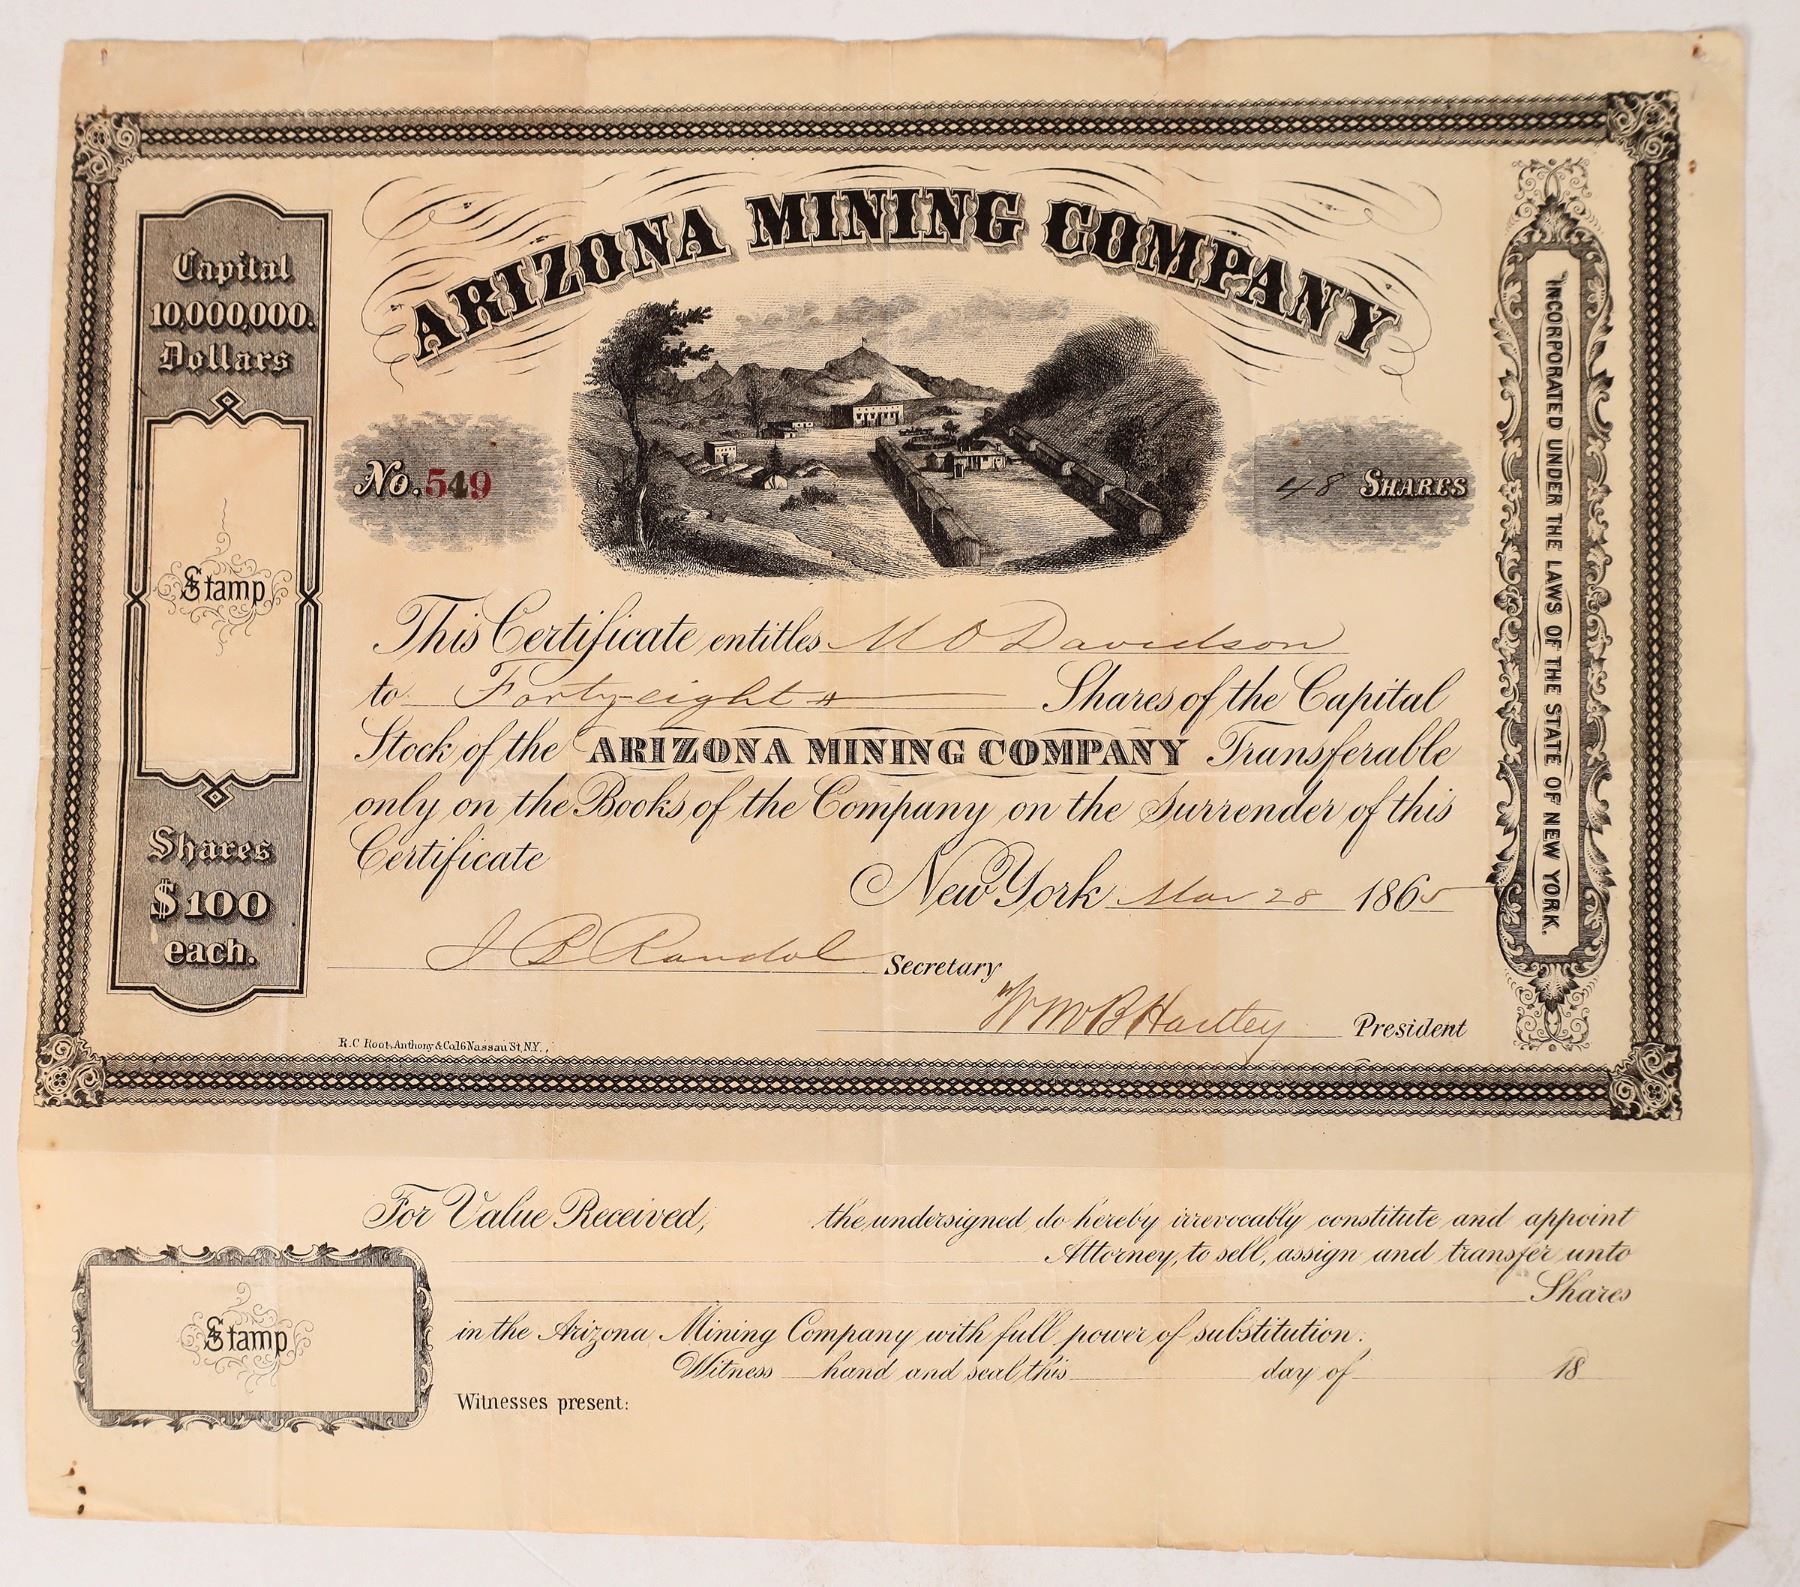 ARIZONA MINING COMPANY
Capital
10,000,000.
Dollars
Stamp
Shares
$100
each.
No. 549
48 SHARES
INCORPORATED UNDER THE LAWS OF THE STATE OF NEW YORK.
This Certificate entitles M O Davidson
to Forty-eight Shares of the Capital
Stock of the ARIZONA MINING COMPANY Transferable
only on the Books of the Company on the Surrender of this
Certificate
New York Mar 28 1865
J B Randol Secretary
Wm B Hartley President
R.C Root, Anthony & Co. 16 Nassau St, N.Y.
For Value Received, the undersigned do hereby irrevocably constitute and appoint
Attorney, to sell, assign and transfer unto
Shares
in the Arizona Mining Company with full power of substitution.
Witness hand and seal this day of 18
Witnesses present:
Stamp